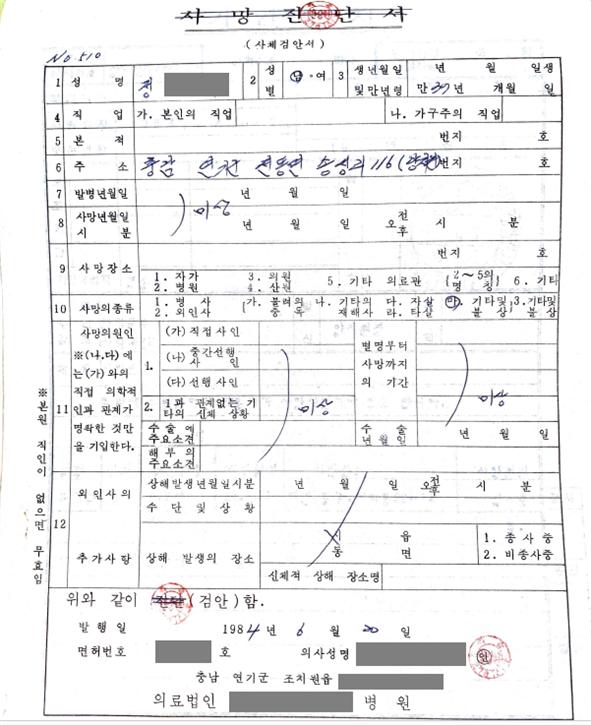 사 망 진 단 서
(사체검안서)
No 510
1 성 명 정 2 성별 남·여 3 생년월일 및만년령 년 월 일생
만 37년 개월 일
4 직 업 가. 본인의 직업 나. 가구주의 직업
5 본 적 번지 호
6 주 소 충남 연기군 전동면 송성리 116 번지 호
7 발병년월일 년 월 일
미상
8 사망년월일 시 분 년 월 일 오전후 시 분
번지 호
9 사망장소 1. 자가 3. 의원 5. 기타 의료관 (2~5의 명 칭) 6. 기타
2. 병원 4. 산원
10 사망의종류 1. 병 사 (가. 불려의 중독 나. 기타의 재해사 다. 자살 마. 기타및 불상) 3. 기타및 불상
2. 외인사 라. 타살
11 사망의원인
※(나.다)에는(가)와의 직접 의학적 인과 관계가 명확한 것만을 기입한다.
1. (가) 직접사인
(나) 중간선행사인
(다) 선행사인
2. 1과 관계없는 기타의 신체 상황
미상
별명부터 사망까지의 기간
미상
수술에 주요소견 수술 년월일 년 월 일
해부의 주요소견
12 외인사의 추가사항
상해발생년월일시분 년 월 일 오전후 시 분
수 단 및 상 황
상해 발생의 장소 시 읍 동 면 1. 종사중
2. 비종사중
신체적 상해 장소명
※본원 직인이 없으면 무효임
위와 같이 진단(검안)함.
발 행 일 1984년 6 월 20 일
면허번호 호 의사성명 인
충남 연기군 조치원읍
의료법인 병 원